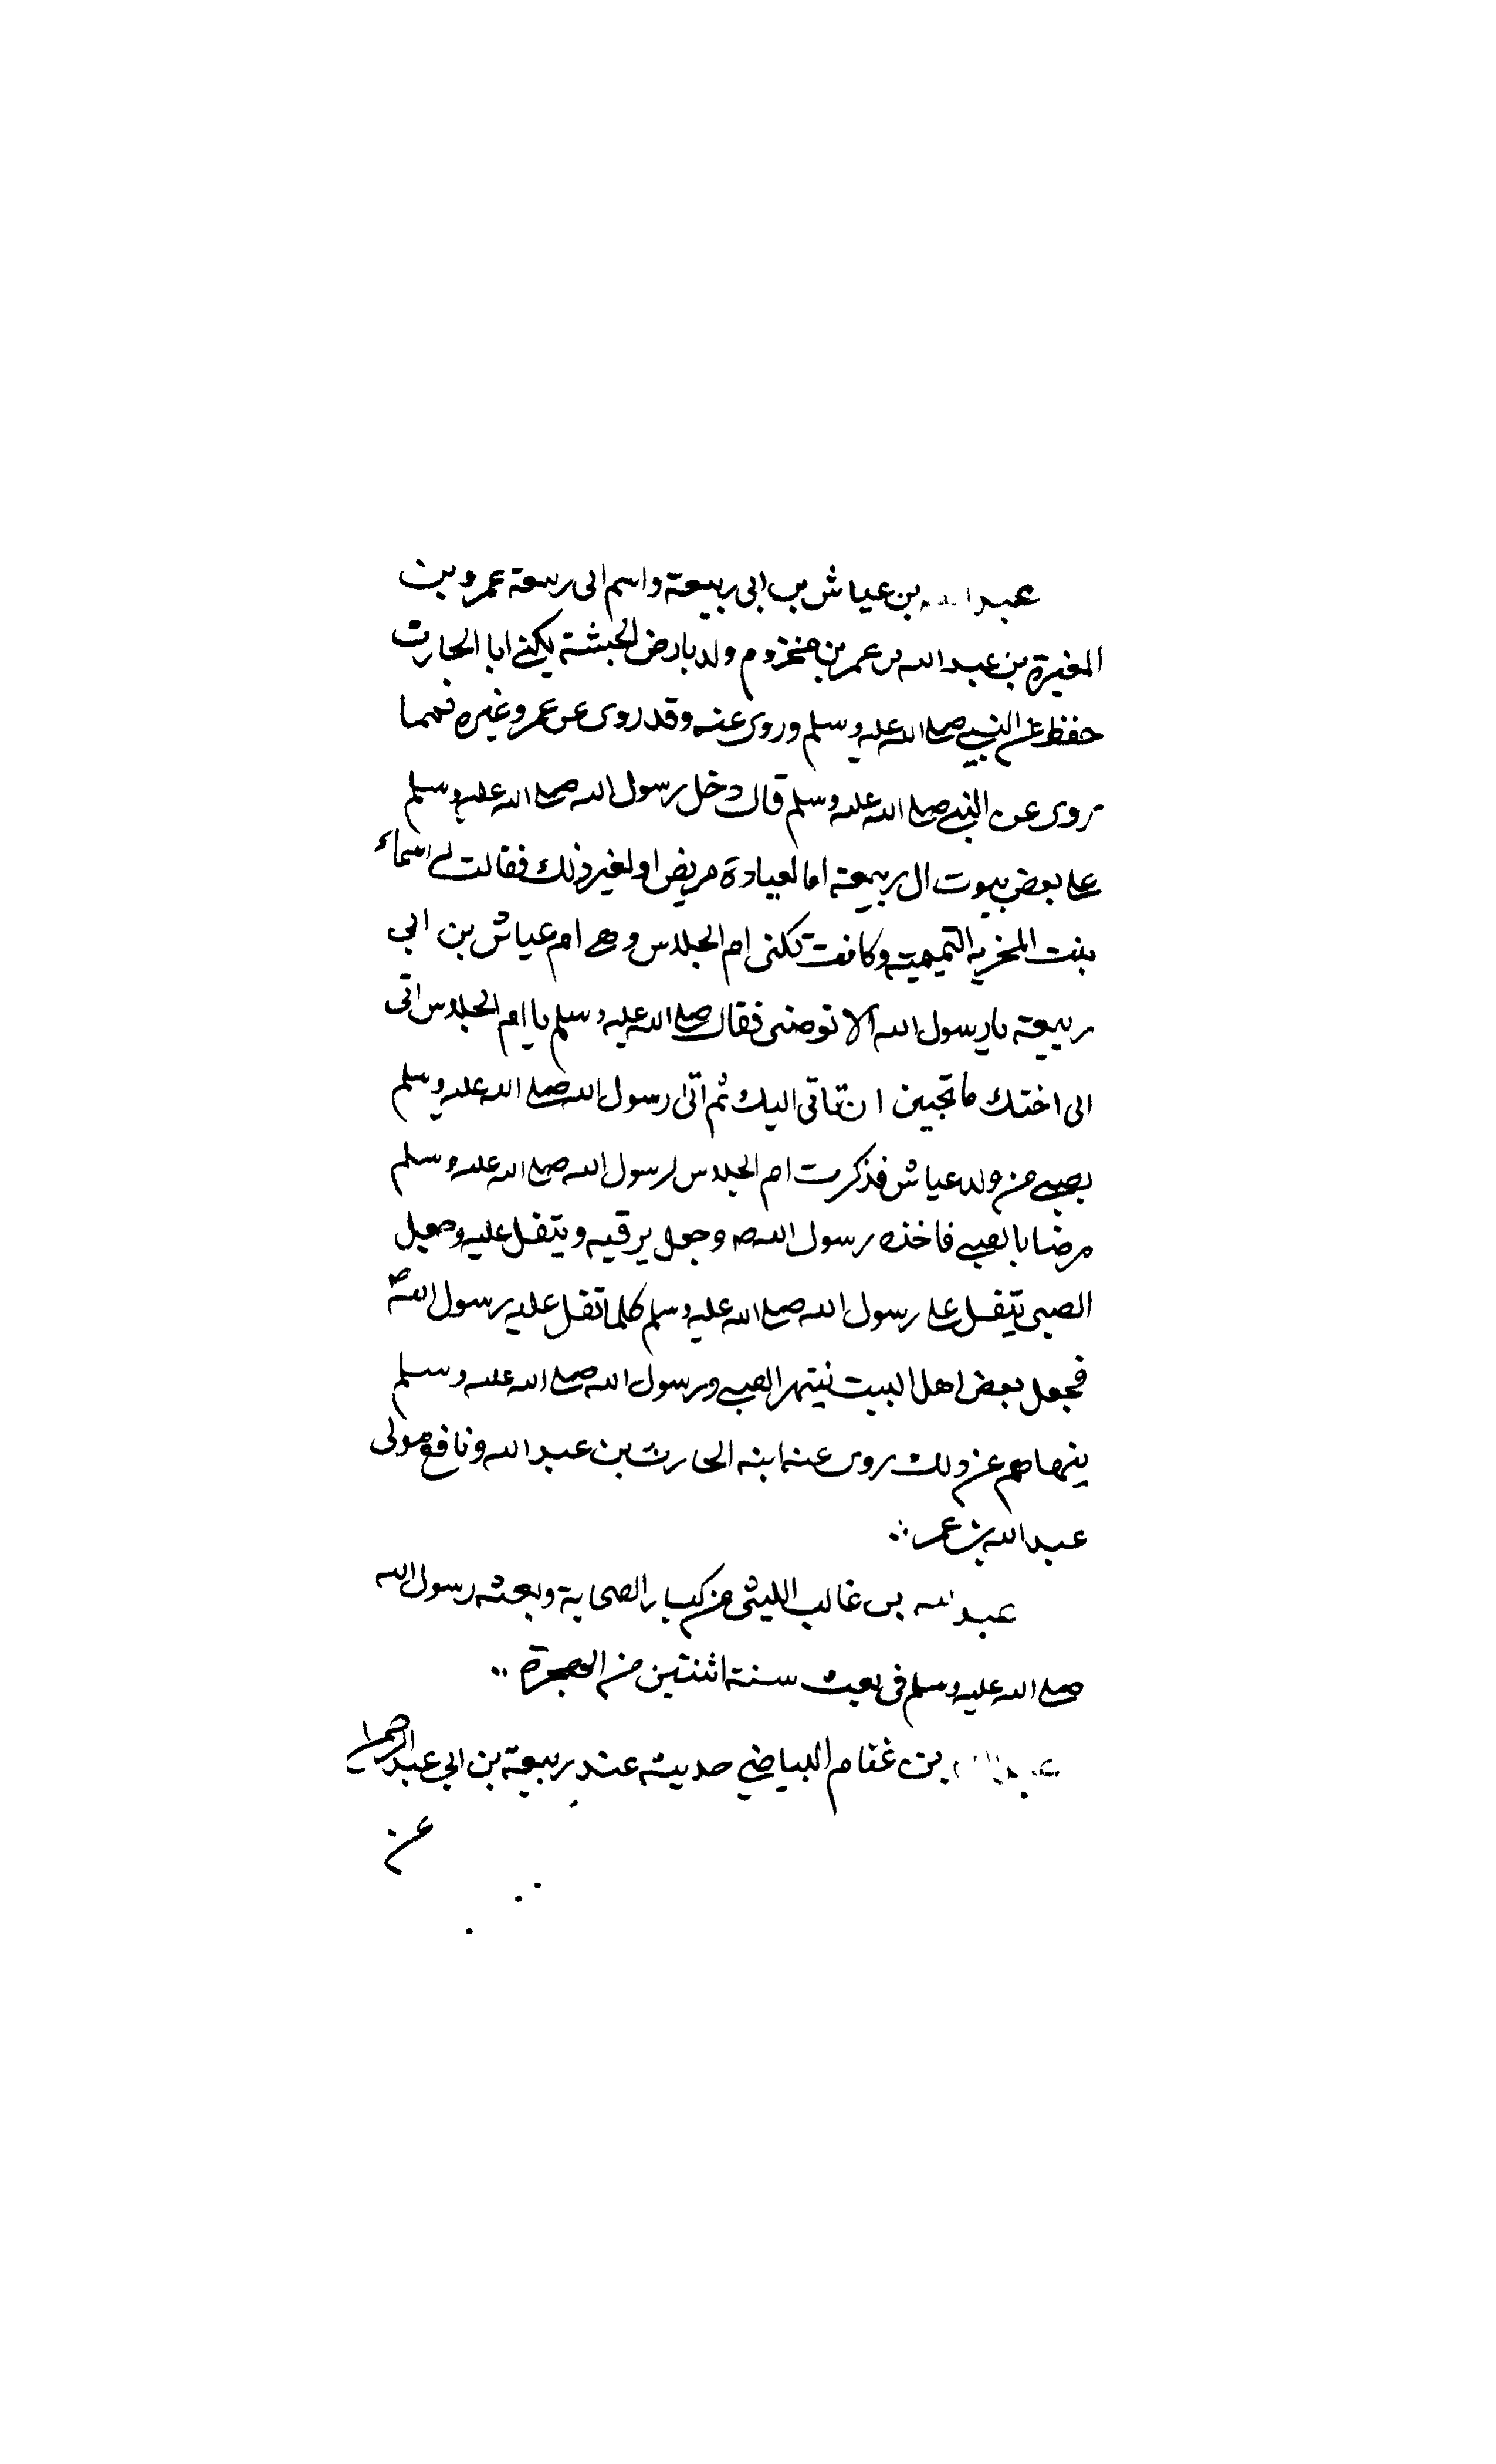 عبد الله بن عياش بن ابى ربيعة واسم ابى ربيعة عمرو بن
المغيرة بن عبد الله بن عمر بن مخزوم ولد بارض الحبشة يكنى ابا الحارث
حفظ عن النبي صلى الله عليه وسلم وروى عنه وقد روى عن عمر وغيره فمما
روى عن النبي صلى الله عليه وسلم قال دخل رسول الله صلى الله عليه وسلم
على بعض بيوت ال ربيعة اما لعيادة مريض او لغير ذلك فقالت له اسماء
بنت المخربه التميمية وكانت تكنى ام الجلاس وهى ام عياش بن ابي
ربيعة يا رسول الله الا توصنى فقال صلى الله عليه وسلم يا ام الجلاس اتى
الى اختك ما تحبين ان تاتى اليك ثم اتى رسول الله صلى الله عليه وسلم
بصبى من ولد عياش فذكرت ام الجلاس لرسول الله صلى الله عليه وسلم
مرضا بالصبى فاخذه رسول الله ص وجعل يرقيه ويتفل عليه وجعل
الصبى يتفل على رسول الله صلى الله عليه وسلم كلما تفل عليه رسول الله ص
فجعل بعض اهل البيت ينتهر الصبى ورسول الله صلى الله عليه وسلم
ينهاهم عن ذلك روى عنه ابنه الحارث بن عبد الله ونافع مولى
عبد الله بن عمر
عبد الله بن غالب الليثى من كبار الصحابة وبعثه رسول الله
صلى الله عليه وسلم فى بعث سنة اثنتين من الهجرة
عبد الله بن غنام البياضي حديثه عند ربيعة بن ابي عبد الرحمن
عن